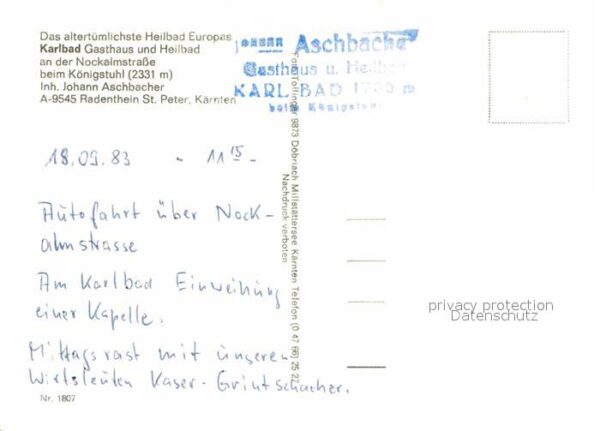 Das altertümlichste Heilbad Europas
Karlbad Gasthaus und Heilbad
an der Nockalmstraße
beim Königstuhl (2331 m)
Inh. Johann Aschbacher
A-9545 Radenthein St. Peter, Kärnten
Johann Aschbacher
Gasthaus u. Heilbad
KARLBAD 1700 m
beim Königstuhl
18.09.83 - 11 15 -
Autofahrt über Nock-
almstrasse
Am Karlbad Einweihung
einer Kapelle.
Mittagsrast mit unseren
Wirtsleuten Kaser-Grintschacher.
Nr. 1807
9873 Döbriach Millstättersee Kärnten Telefon (0 47 66) 25 22
Nachdruck verboten
privacy protection
Datenschutz